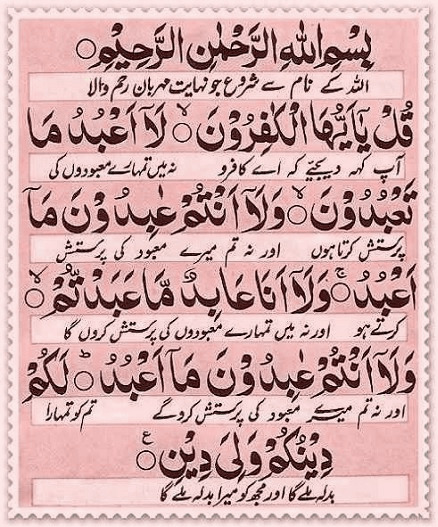 بِسْمِ اللهِ الرَّحْمٰنِ الرَّحِيْمِ ○
اللہ کے نام سے شروع جو نہایت مہربان رحم والا
قُلْ يٰۤاَيُّهَا الْكٰفِرُوْنَ ○ۙ لَاۤ اَعْبُدُ مَا
آپ کہہ دیجیۓ کہ اے کافرو نہ میں تمہارے معبودوں کی
تَعْبُدُوْنَ ○ۙ وَلَاۤ اَنْتُمْ عٰبِدُوْنَ مَاۤ
پرستش کرتا ہوں اور نہ تم میرے معبود کی پرستش
اَعْبُدُ ○ۚ وَلَاۤ اَنَا عَابِدٌ مَّا عَبَدْتُّمْ ○ۙ
کرتے ہو اور نہ میں تمہارے معبودوں کی پرستش کروں گا
وَلَاۤ اَنْتُمْ عٰبِدُوْنَ مَاۤ اَعْبُدُ ○ؕ لَكُمْ
اور نہ تم میرے معبود کی پرستش کرو گے تم کو تمہارا
دِيْنُكُمْ وَلِىَ دِيْنِ ○ع
بدلہ ملے گا اور مجھ کو میرا بدلہ ملے گا